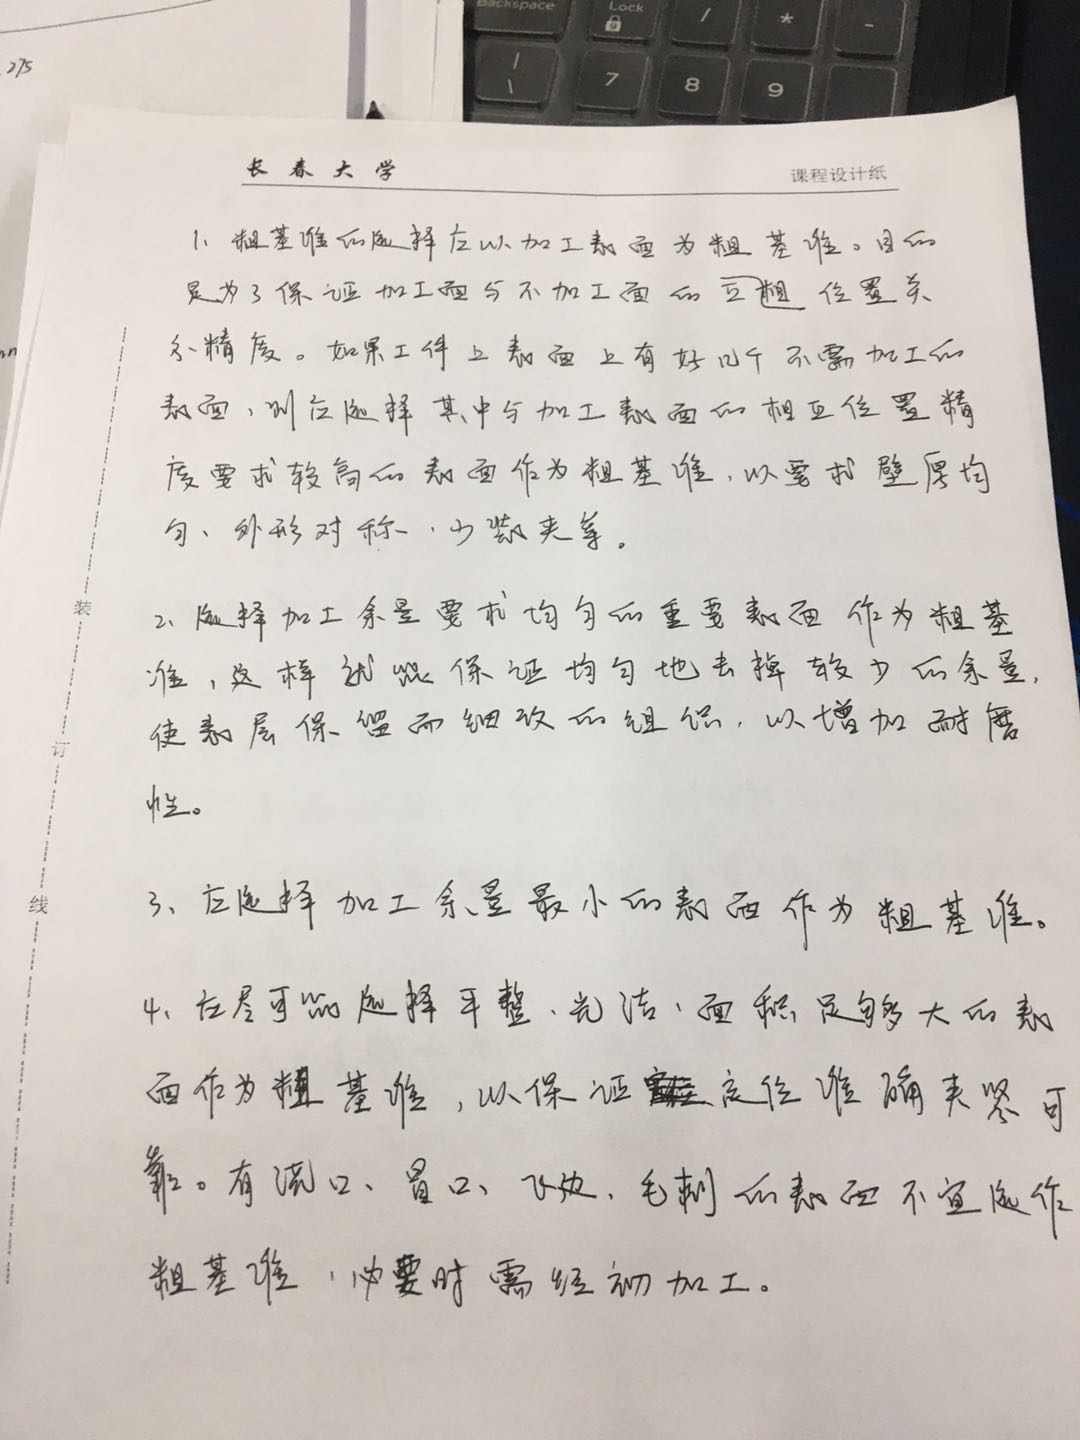 Backspace
Lock
/
*
-
\
7
8
9
275
长春大学
课程设计纸
1、粗基准的选择应以加工表面为粗基准。目的
是为了保证加工面与不加工面的互相位置关
系精度。如果工件上表面上有好几个不需加工的
表面，则应选择其中与加工表面的相互位置精
度要求较高的表面作为粗基准，以要求壁厚均
匀、外形对称、少装夹等。
2、选择加工余量要求均匀的重要表面作为粗基
准，这样就能保证均匀地去掉较少的余量，
使表层保留而细致的组织，以增加耐磨
性。
3、应选择加工余量最小的表面作为粗基准。
4、应尽可能选择平整、光洁、面积足够大的表
面作为粗基准，以保证定位准确夹紧可
靠。有浇口、冒口、飞边、毛刺的表面不宜选作
粗基准，必要时需经初加工。
装
订
线